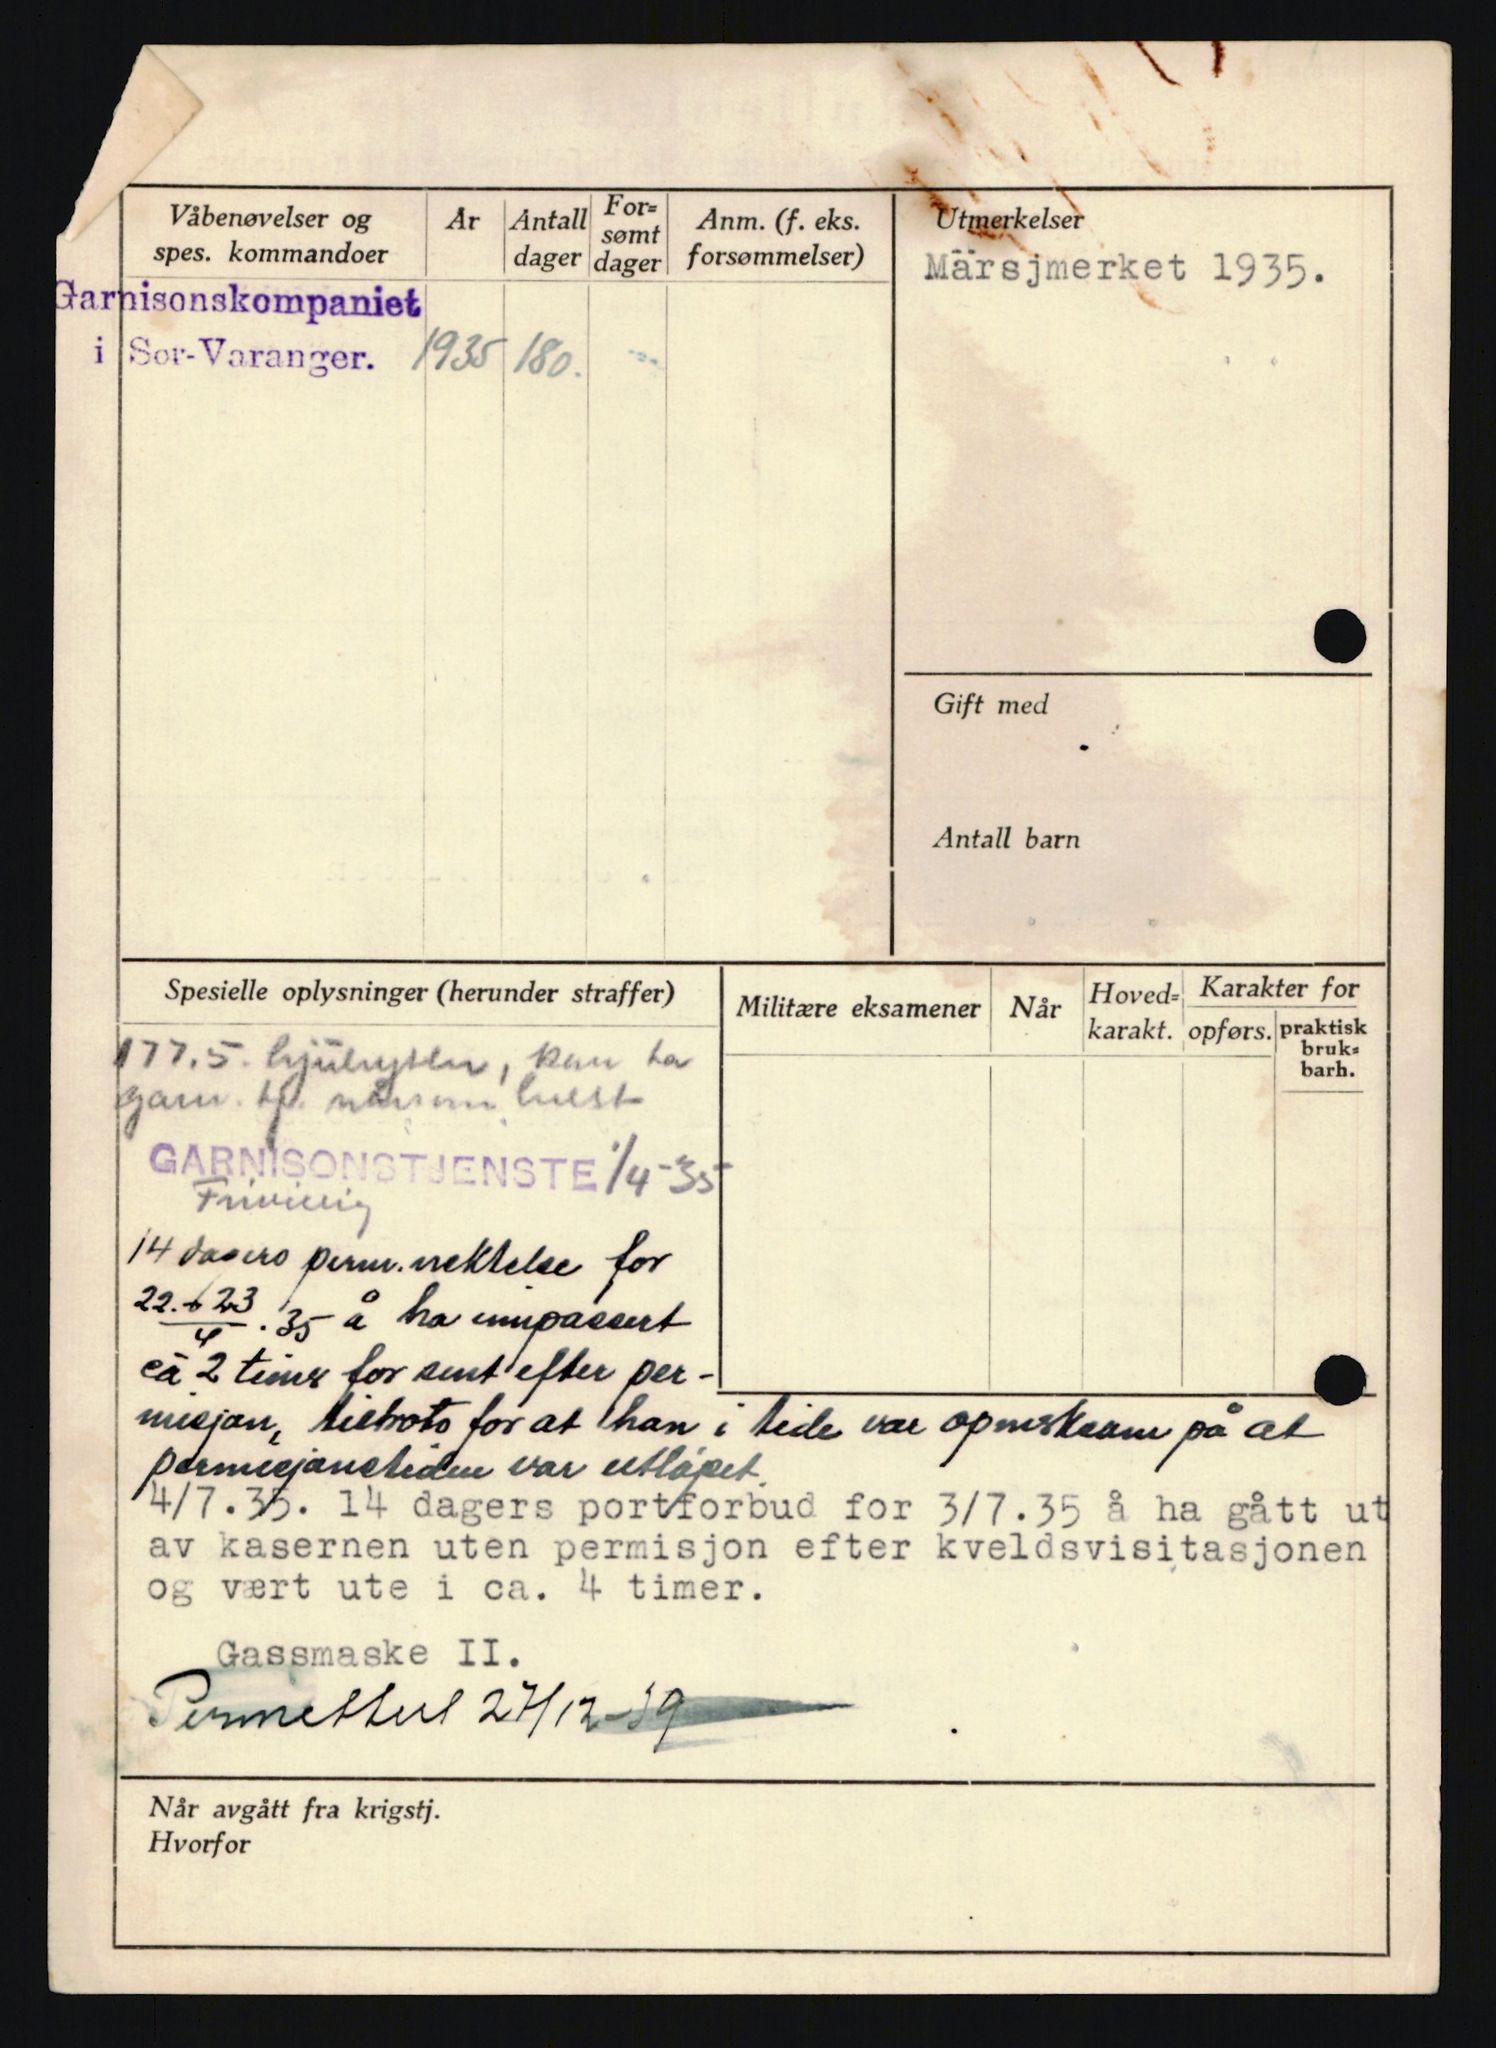 Våbenøvelser og
spes. kommandoer
År
Antall
dager
For=
sømt
dager
Anm. (f. eks.
forsømmelser)
Garnisonskompaniet
i Sør-Varanger. 1935 180.
Utmerkelser
Märsjmerket 1935.
Gift med
Antall barn
Spesielle oplysninger (herunder straffer)
177.5. kan ta
garn. tj. nårsom helst
GARNISONSTJENSTE 1/4-35
Frivillig
14 dagers perm.nektelse for
22.-23/4.35 å ha innpassert
ca 2 timer for sent efter per-
misjon, tiltross for at han i tide var opmerksom på at
permisjonstiden var utløpet.
4/7.35. 14 dagers portforbud for 3/7.35 å ha gått ut
av kasernen uten permisjon efter kveldsvisitasjonen
og vært ute i ca. 4 timer.
Gassmaske II.
Permittert 27/12-39
Militære eksamener
Når
Hoved=
karakt.
Karakter for
opførs.
praktisk
bruk=
barh.
Når avgått fra krigstj.
Hvorfor